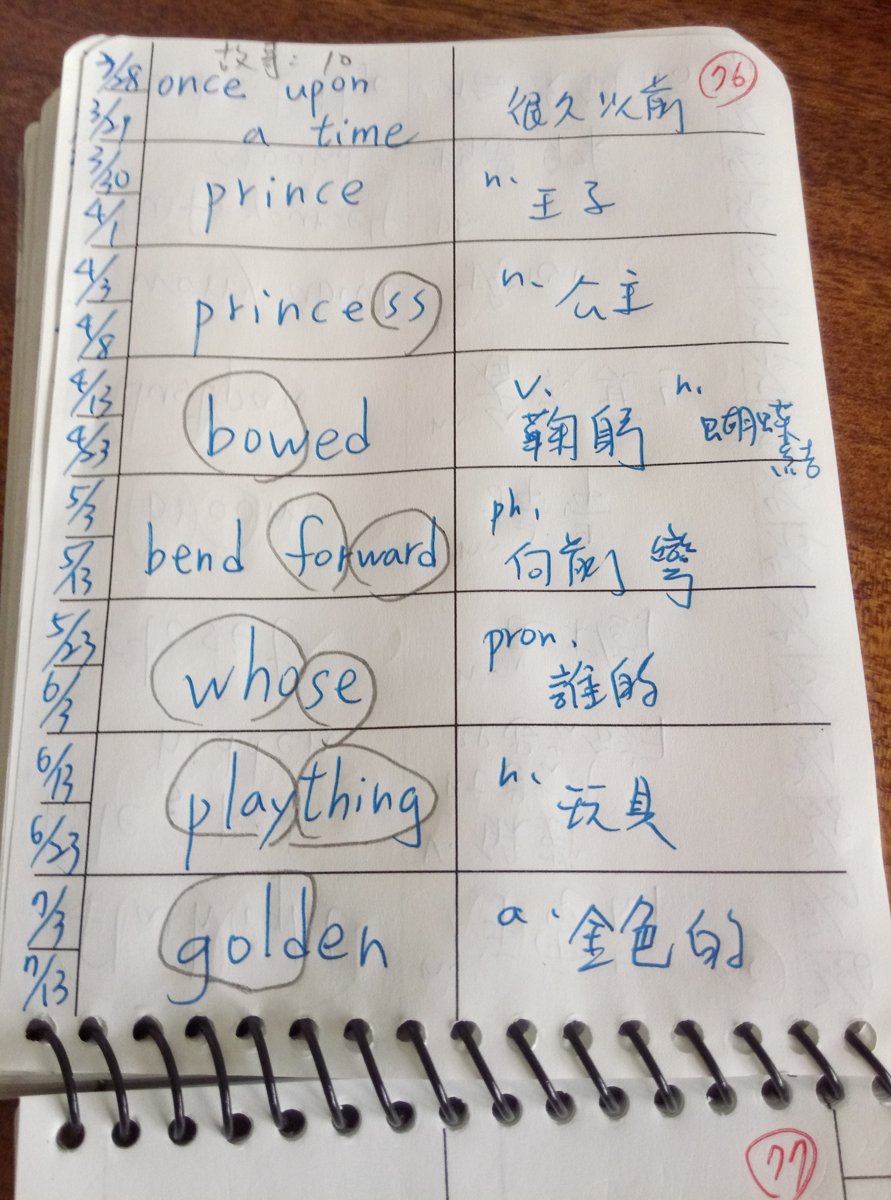 故事: 10
76
3/28 once upon
3/29 a time 很久以前
3/30 prince n. 王子
4/1
4/3 princess n. 公主
4/8
4/13 bowed v. 鞠躬 n. 蝴蝶結
4/23
5/3 bend forward ph. 向前彎
5/13
5/23 whose pron. 誰的
6/3
6/13 plaything n. 玩具
6/23
7/3 golden a. 金色的
7/13
77